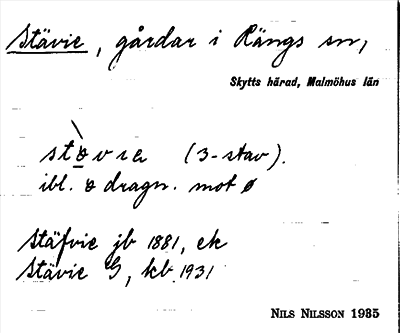 Stävie, gårdar i Rängs sn,
Skytts härad, Malmöhus län
stàvia (3-stav).
ibl. a dragn. mot ø
Stäfvie jb 1881, ek
Stävie G, kb 1931
NILS NILSSON 1935